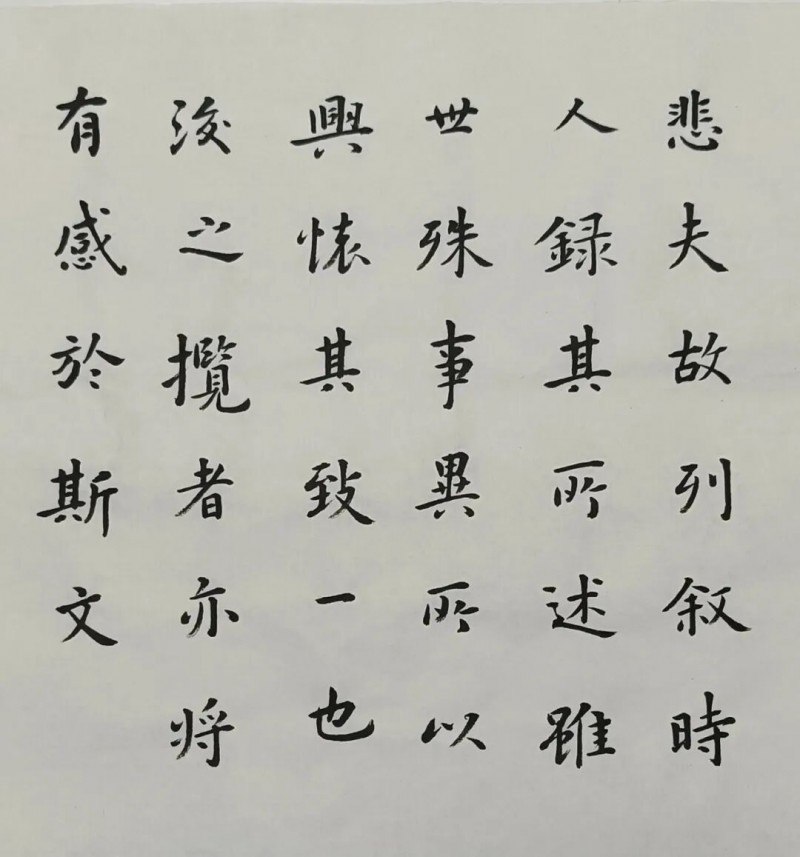 悲夫故列叙時
人録其所述雖
世殊事異所以
興懐其致一也
後之攬者亦将
有感於斯文